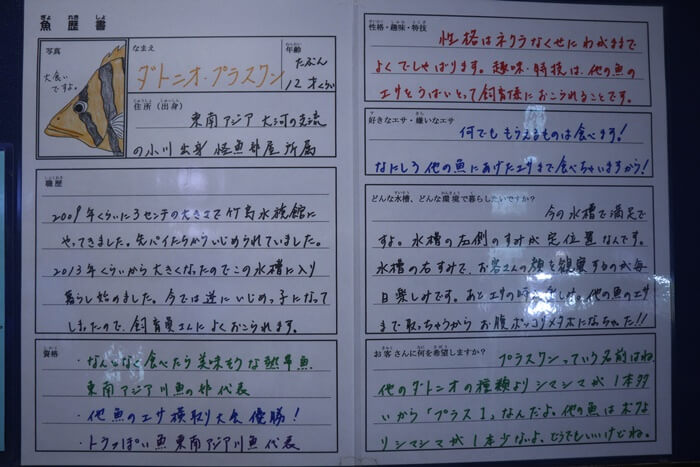 魚歴書
写真
大食い
ですよ。
なまえ
ダトニオ・プラスワン
年齢
たぶん
12才くらい
住所(出身)
東南アジア 大河の支流
の小川出身 怪魚部屋所属
職歴
2009年くらいに3センチの大きさで竹島水族館に
やってきました。先パイたちからいじめられていました。
2013年くらいから大きくなったのでこの水槽に入り
暮らし始めました。今では逆にいじめっ子になって
しまったので、飼育員さんによくおこられます。
資格
・なんとなく食べたら美味そうな熱帯魚
東南アジア川魚の部代表
・他魚のエサ横取り大会優勝！
・トラっぽい魚東南アジア川魚代表
性格・趣味・特技
性格はネクラなくせにわがままで
よくでしゃばります。趣味・特技は、他の魚の
エサをうばいとって飼育係におこられることです。
好きなエサ・嫌いなエサ
何でももらえるものは食べます！
なにしろ他の魚にあげたエサまで食べちゃいますから！
どんな水槽、どんな環境で暮らしたいですか？
今の水槽で満足で
すよ。水槽の左側のすみが定位置なんです。
水槽の右すみで、お客さんの顔を観察するのが毎
日楽しみです。あとエサの時も楽しみ。他の魚のエサ
まで取っちゃうからお腹ポッコリメタボになっちゃった!!
お客さんに何を希望しますか？
プラスワンっていう名前はね、
他のダトニオの種類よりシマシマが1本多
いから「プラス1」なんだよ。他の魚はボクよ
りシマシマが1本少ないよ。どうでもいいけどね。